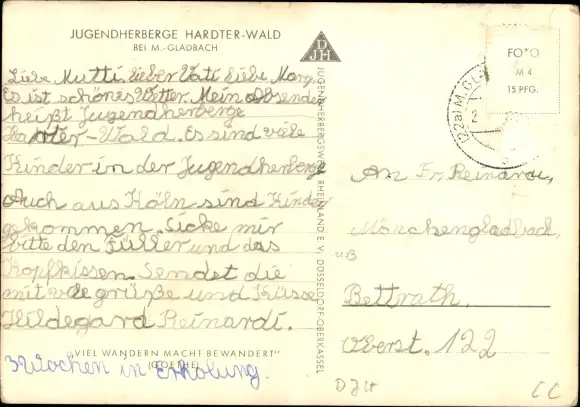 JUGENDHERBERGE HARDTER-WALD
BEI M.-GLADBACH
Liebe Mutti, lieber Vati liebe
Es ist schönes Wetter. Mein Absender
heißt Jugendherberge
Hardter-Wald. Es sind viele
Kinder in der Jugendherberge
Auch aus Köln sind Kinder
gekommen. Sicke mir
bitte den Füller und das
Kopfkissen. Sendet die
mit vile grüße und Küsse
Hildegard Reinardi.
"VIEL WANDERN MACHT BEWANDERT"
(GOETHE)
3 Wochen in Erholung.
DJH
JUGENDHERBERGSWERK RHEINLAND E. V. DÜSSELDORF-OBERKASSEL
(22a) M.GL
FOTO
M 4
15 PFG.
An Fr. Reinardi,
Mönchengladbach,
Bettrath,
Oberst. 122
DJH
CC